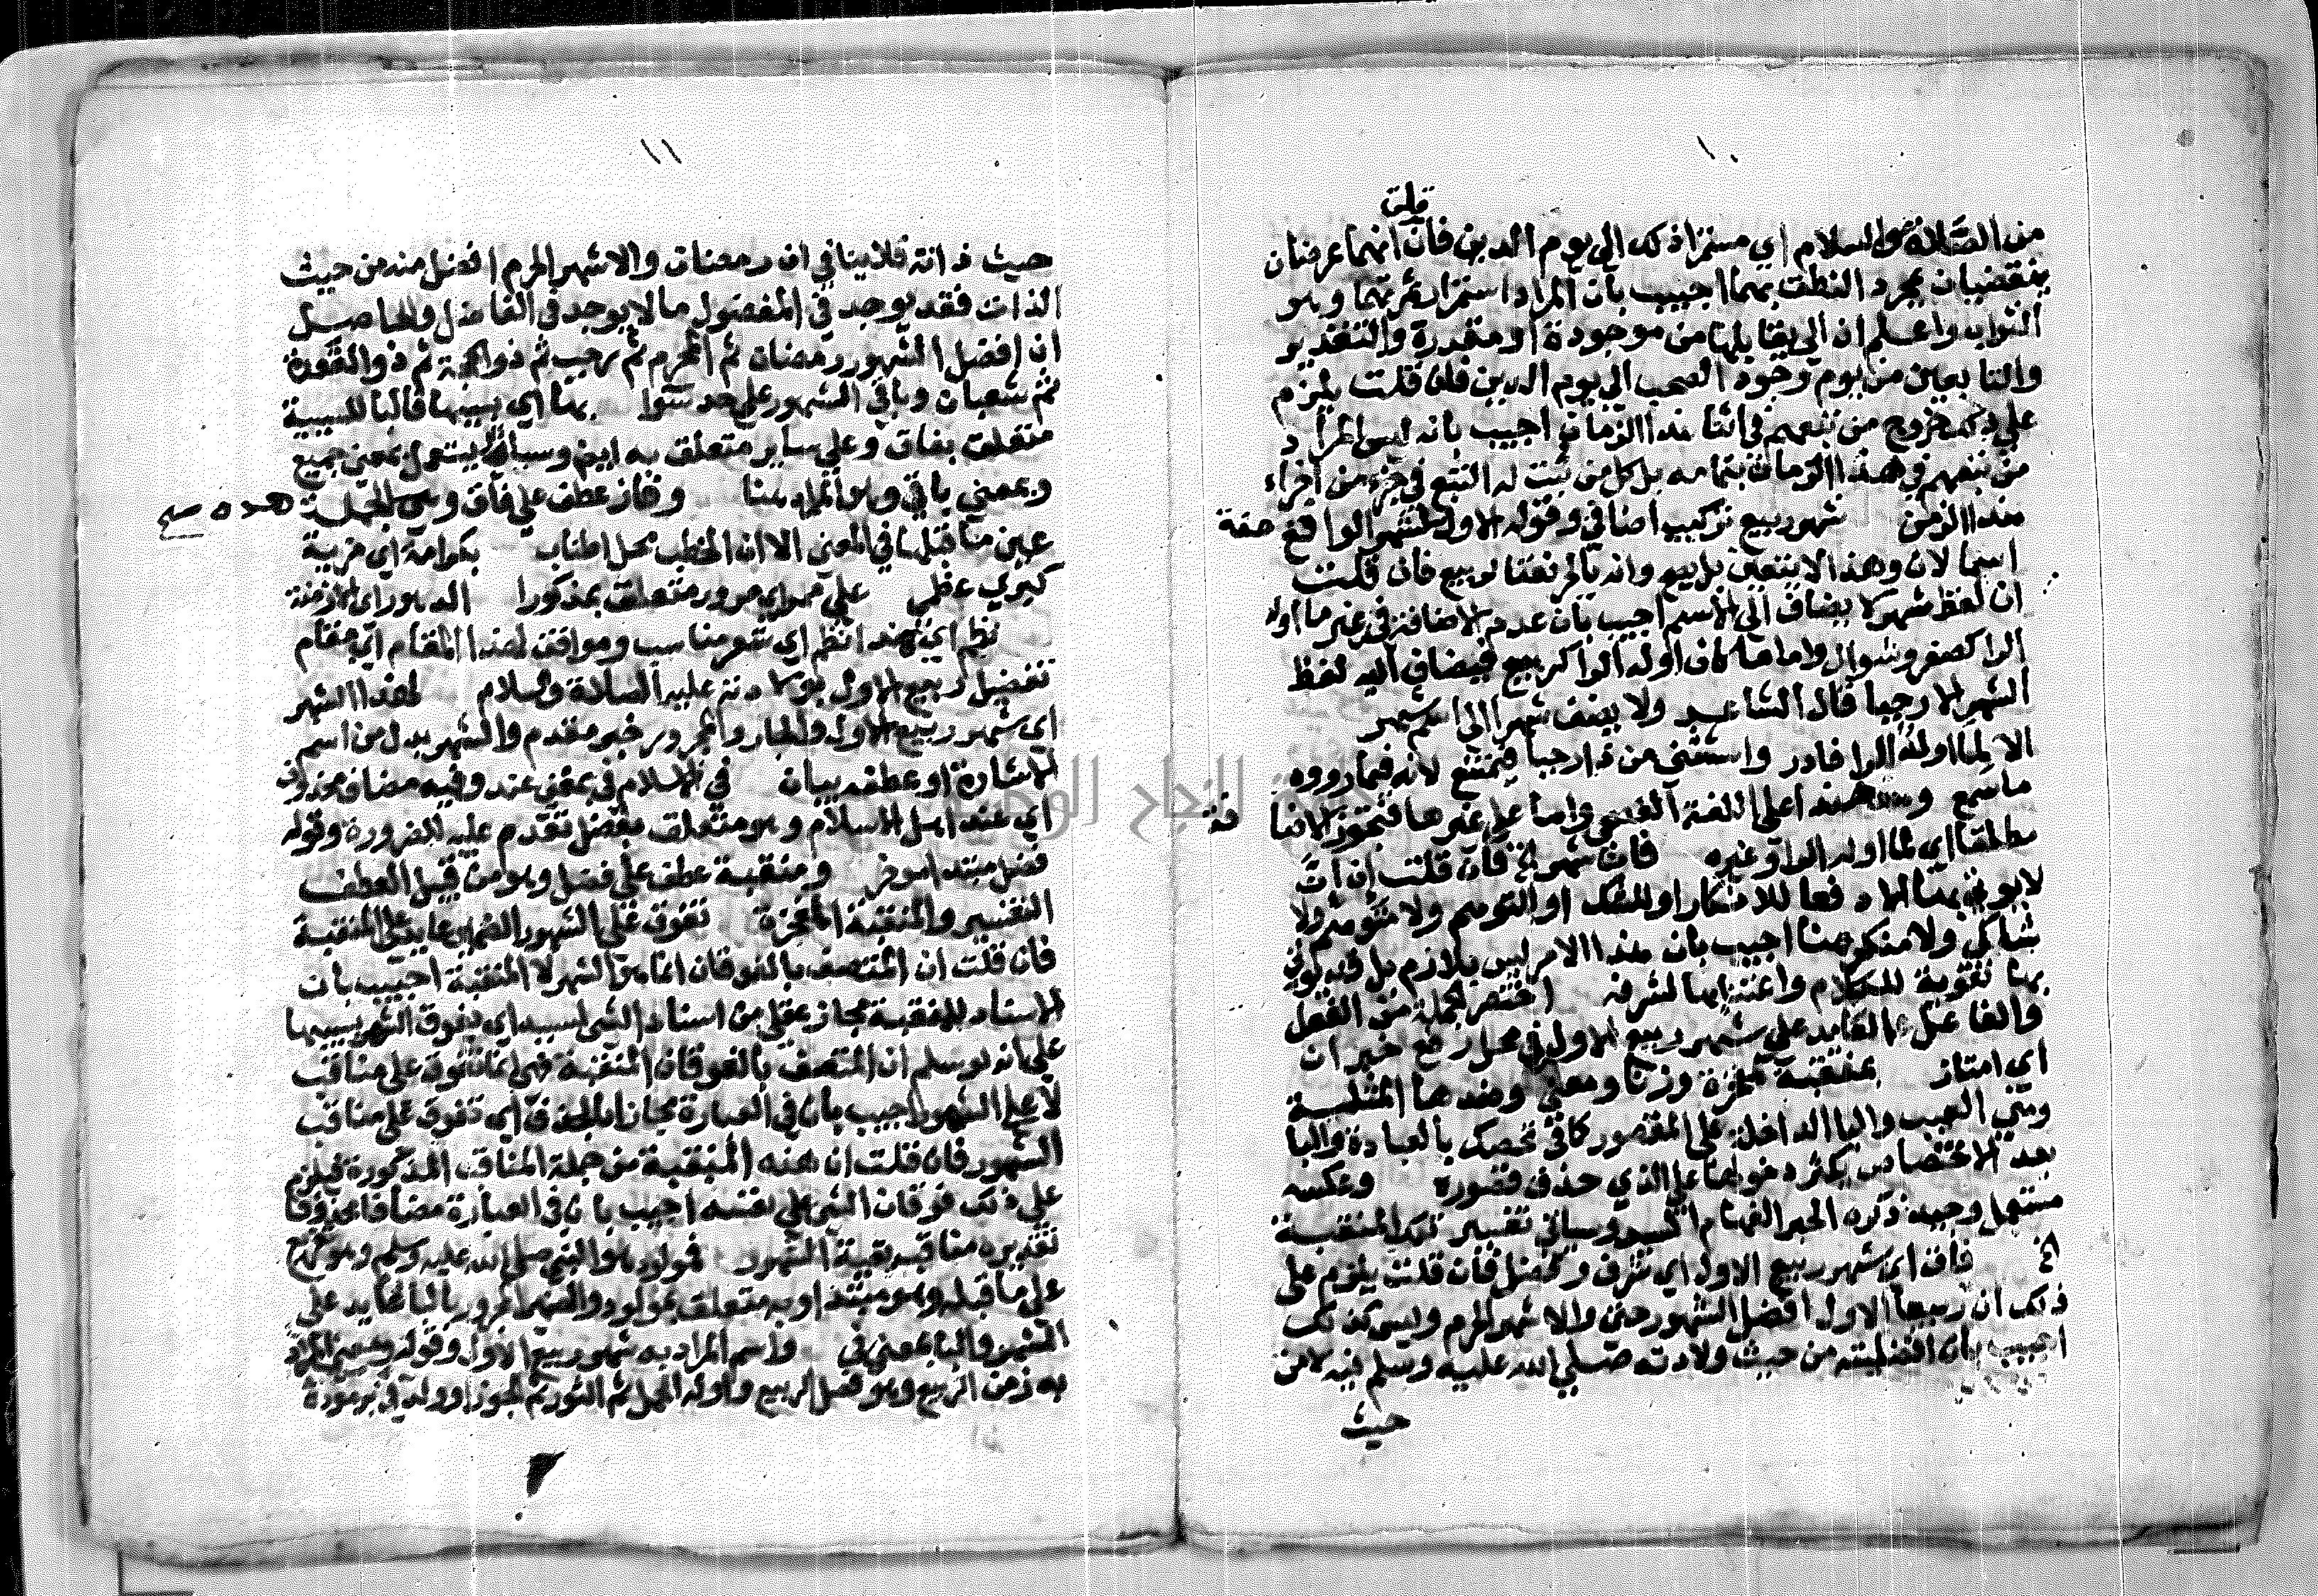 ١٠
قلت
من الصلاة والسلام اي مستمرا ذلك الى يوم الدين فان انهما عرضان
ينقضيان بمجرد النطق بهما اجيب بان المراد استمرار ثمرتهما وهو
الثواب واعلم ان ال يقابلها من موجودة او مقدرة والتقدير
والتابعين من يوم وجود الصحب الى يوم الدين فان قلت يلزم
على ذلك خروج من تبعهم في اثنا هذا الزمان اجيب بانه ليس المراد
من تبعهم في هذا الزمان بتمامه بل كل من ثبت له التبع في جزء من اجزاء
هذا الزمن شهر ربيع تركيب اضافي وقوله الاول للشهر الواقع صفة
اسما لان وهذا لا يتعين بل يصح وانه بالجر نعتا لربيع فان قلت
ان لفظ شهر لا يضاف الى الاسم اجيب بان عدم الاضافة في غير ما اوله
الرا كصفر وشوال واما ما كان اوله الرا كربيع فيضاف اليه لفظ
الشهر الا رجبا قال الشاعر ولا يضف شهرا الى اسم شهر
الا لما اوله الرا فادر واستثنى من ذا رجبا فيمتنع لانه فيما رووه
ما سمع وهذا على اللغة الفصحى واما على غيرها فتجوز الاضا فة
مطلقا اي لما اوله الرا وغيره فان شهر الخ فان قلت ان ان
لا يوتى بها الا دفعا للانكار او للشك او التوهم ولا متوهم ولا
شاك ولا منكر هنا اجيب بان هذا الامر ليس بلازم بل قد يوتى
بها تقوية للكلام واعتنا بها لشرفه اختص الجملة من الفعل
والفاعل العايد على شهر ربيع الاول في محل رفع خبر ان
اي امتاز بمنقبة مفخرة وزنا ومعنى وضدها المثلبة
وهي العيب والبا الداخلة على المقصور كافي نخصك بالعبادة والبا
بعد الاختصاص يكثر دخولها على الذي حذف قصوره وعكسه
مستعمل وجيد ذكره الحبر الهمام السيد وسياتي تفسير تلك المنقبة
فاق اي شهر ربيع الاول اي شرف وفضل فان قلت يلزم على
ذلك ان ربيعا الاول افضل الشهور حتى والاشهر الحرم وليس كذلك
اجيب بان افضليته من حيث ولادته صلى الله عليه وسلم فيه لا من
حيث
١١
حيث ذاته فلا ينافي ان رمضان والاشهر الحرم افضل منه من حيث
الذات فقد يوجد في المفضول ما لا يوجد في الفاضل والحاصل
ان افضل الشهور رمضان ثم المحرم ثم رجب ثم ذو الحجة ثم ذو القعدة
ثم شعبان وباقي الشهور على حد سوا بها اي بسببها فالبا للسببية
متعلق بفاق وعلى ساير متعلق به ايض وساير يستعمل بمعنى جميع
وبمعنى باقي وهو المراد هنا وفاز عطف على فاق وهي الجملة
عين ما قبلها في المعنى الا ان الخطب محل اطناب بكرامة اي مزية
كبرى عظمى على ممر اي مرور متعلق بمذكورا الدهور اي الازمنة
نظم اي بهذا نظم اي شعر مناسب وموافق لهذا المقام اي مقام
تفضيل ربيع الاول بولادته عليه الصلاة والسلام لهذا الشهر
اي شهر ربيع الاول والجار والمجرور خبر مقدم والشهر بدل من اسم
الاشارة او عطف بيان في الاسلام في بمعنى عند وفيه مضاف محذوف
اي عند اهل الاسلام وهو متعلق بفضل تقدم عليه للضرورة وقوله
فضل مبتدا موخر ومنقبة عطف على فضل وهو من قبيل العطف
التفسير والمنقبة المفخرة تفوق على الشهور الضمير عايد على المنقبة
فان قلت ان المتصف بالفوقان انما هو الشهر لا المنقبة اجيب بان
الاسناد للمنقبة مجاز عقلي من اسناد الشي لسببه اي يفوق الشهر بسببها
على انه لو سلم ان المتصف بالفوقان المنقبة فهي انما تفوق على مناقب
لا على الشهور اجيب بان في العبارة مجازا بالحذف اي تفوق على مناقب
الشهور فان قلت ان هذه المنقبة من جملة المناقب المذكورة فيلزم
على ذلك فوقان الشي على نفسه اجيب بان في العبارة مضافا محذوفا
تقديره مناقب بقية الشهور فمولود هو النبي صلى الله عليه وسلم وهو تفريع
على ما قبله وهو مبتدا وبه متعلق بمولود والضمير المجرور بالبا عايد على
الشهر والبا بمعنى في واسم المراد به شهر ربيع الاول وقوله ومعنى المراد
به زمن الربيع وهو فصل الربيع واوله الحمل ثم الثور ثم الجوزا وولد في برمودة